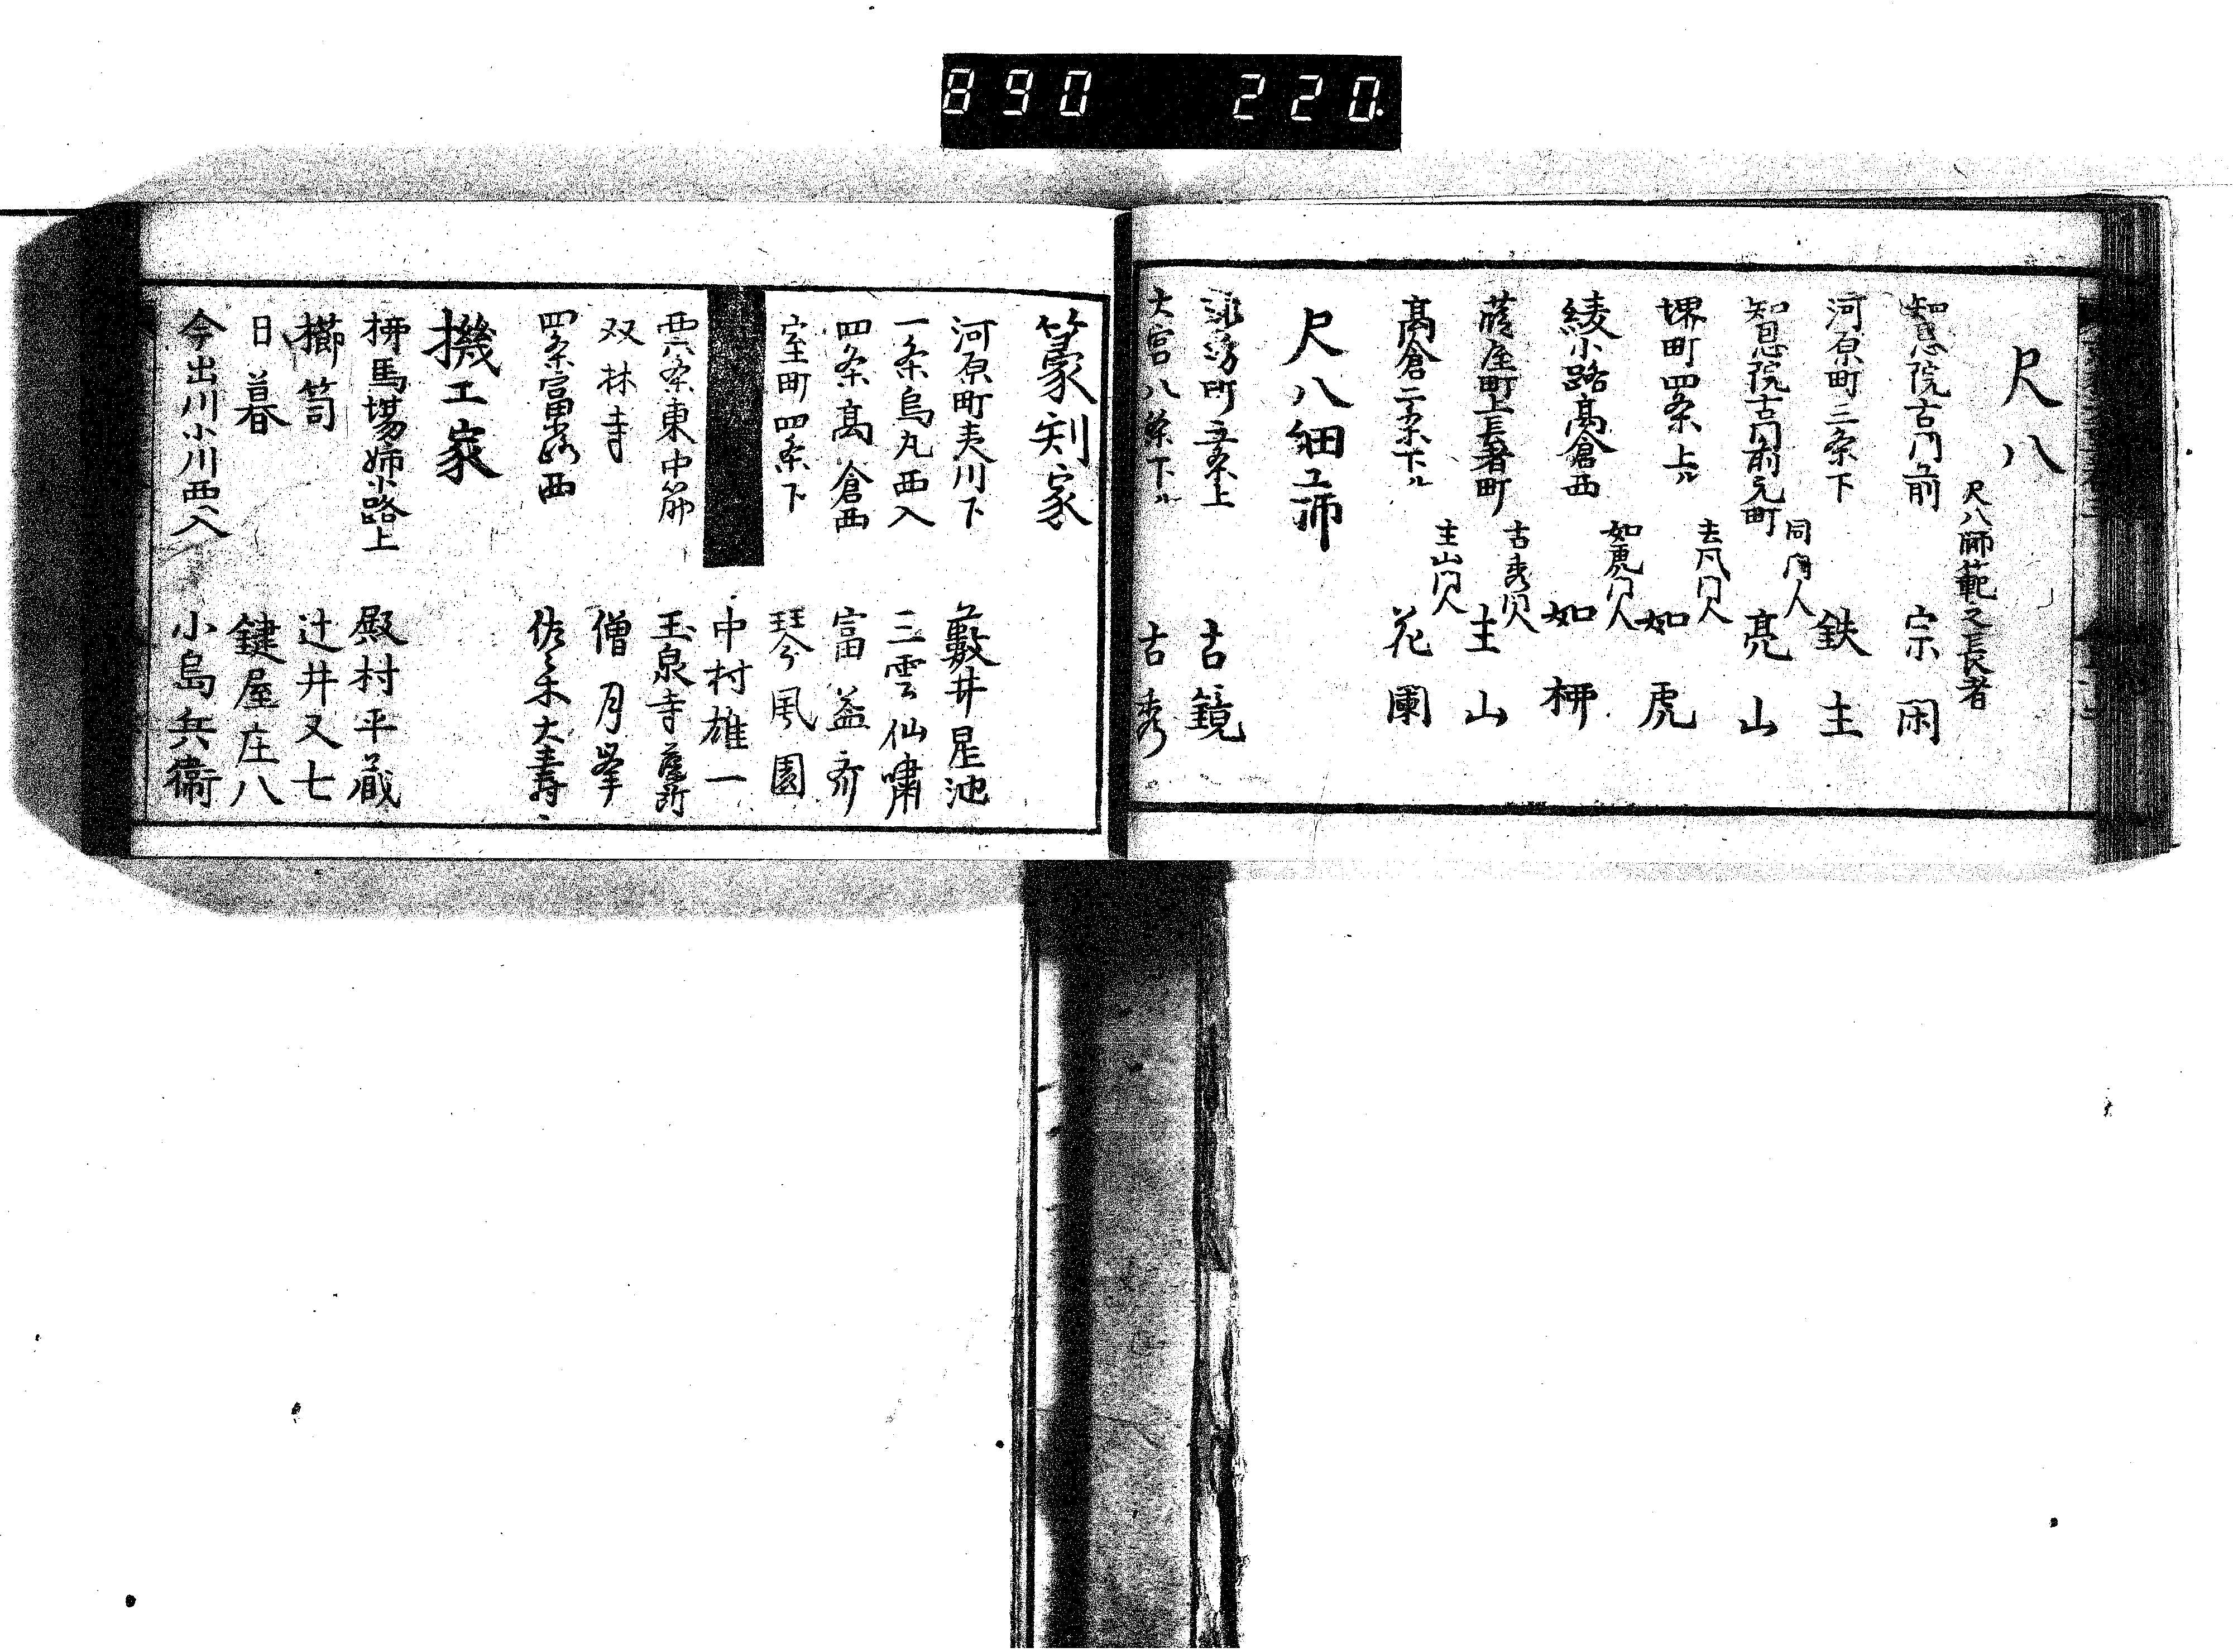 890 220.
尺八
尺八師範之長者
知恩院古門前 宗閑
河原町二条下 同門人 鉄主
知恩院古門前元町 亮山
堺町四条上ル 去風門人 如虎
綾小路高倉西 如虎門人 如柳
葭屋町上長者町 古秀門人 主山
高倉二条下ル 主山門人 花蘭
尺八細工師
町五条上 古鏡
大宮八条下ル 古秀
篆刻家
河原町夷川下 藪井星池
一条烏丸西入 三雲仙嘯
四条高倉西 富益斎
室町四条下 琴風園
中村雄一
西六条東中筋 玉泉寺
双林寺 僧月峯
四条富小路西 佐々木大寿
機工家
柳馬場姉小路上 殿村平蔵
櫛笥 辻井又七
日暮 鍵屋庄八
今出川小川西入 小島兵衛